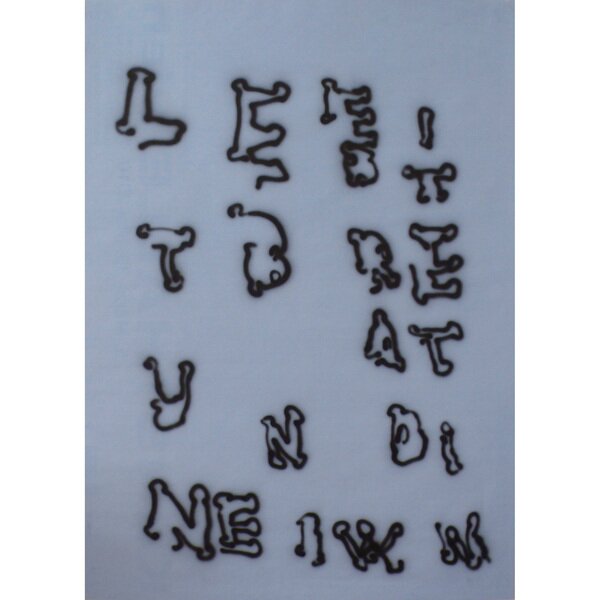 L E E I
B T
T B R E
A T
U
N D i
NE I W W